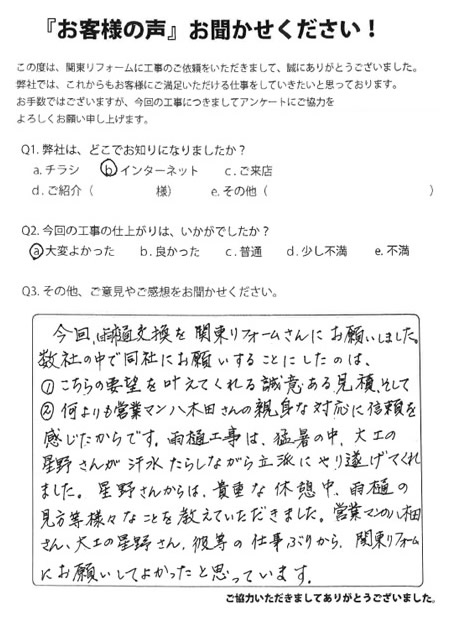 『お客様の声』お聞かせください！
この度は、関東リフォームに工事のご依頼をいただきまして、誠にありがとうございました。
弊社では、これからもお客様にご満足いただける仕事をしていきたいと思っております。
お手数ではございますが、今回の工事につきましてアンケートにご協力を
よろしくお願い申し上げます。
Q1. 弊社は、どこでお知りになりましたか？
a. チラシ b インターネット c. ご来店
d. ご紹介（ 様） e. その他（ ）
Q2. 今回の工事の仕上がりは、いかがでしたか？
a 大変よかった b. 良かった c. 普通 d. 少し不満 e. 不満
Q3. その他、ご意見やご感想をお聞かせください。
今回、雨樋交換を関東リフォームさんにお願いしました。
数社の中で同社にお願いすることにしたのは、
①こちらの要望を叶えてくれる誠意ある見積、そして
②何よりも営業マン八木田さんの親身な対応に信頼を
感じたからです。雨樋工事は、猛暑の中、大工の
星野さんが汗水たらしながら立派にやり遂げてくれ
ました。星野さんからは、貴重な休憩中、雨樋の
見方等様々なことを教えていただきました。営業マンの八木田
さん、大工の星野さん、彼等の仕事ぶりから、関東リフォーム
にお願いしてよかったと思っています。
ご協力いただきましてありがとうございました。